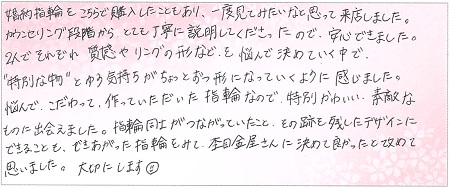 婚約指輪をこちらで購入したこともあり、一度見てみたいなと思って来店しました。
カウンセリング段階から とても丁寧に説明してくださったので、安心できました。
2人でそれぞれ 質感や リングの形などを 悩んで 決めていく中で、
"特別な物" とゆう気持ちがちょっとずつ形になっていくように 感じました。
悩んで、こだわって、作っていただいた 指輪なので、特別かわいい 素敵な
ものに出会えました。指輪同士がつながっていたこと、その跡を残したデザインに
できることも、できあがった指輪をみて、杢目金屋さんに決めて良かったと改めて
思いました。 大切にします